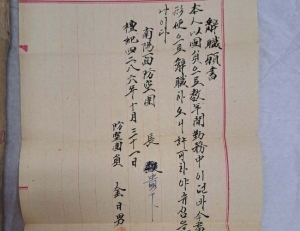 解職願書
本人以團員으로數年間勤務中이던바今番
形便으로解職하오니許可하야주심을
나이다
南陽面防空團長 殿
檀紀四二八六年十月三十一日
防空團員 金日男